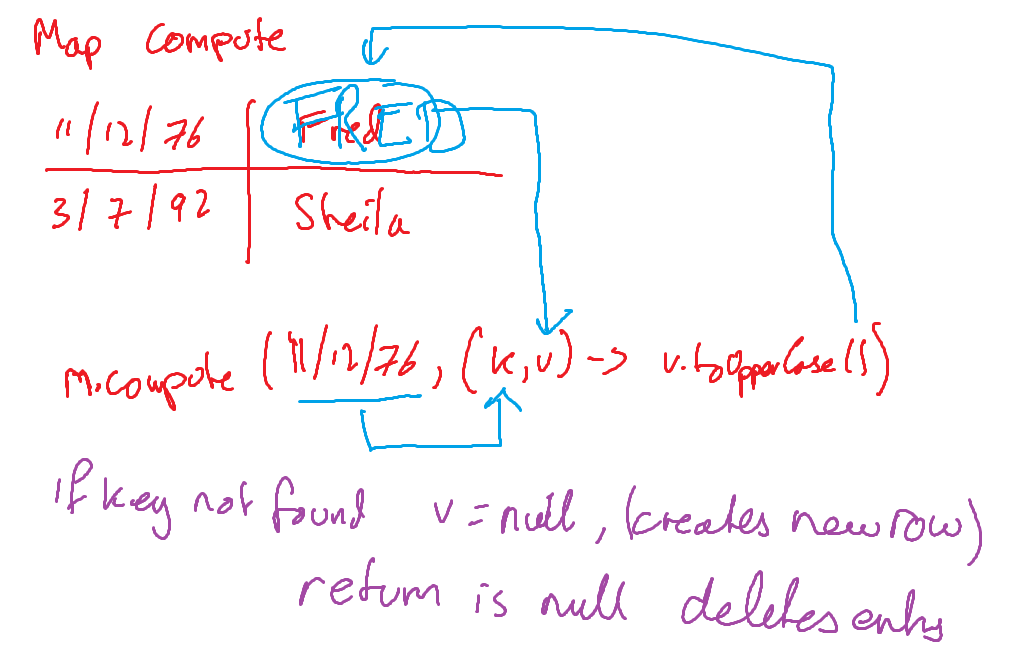 Map Compute
11/12/76 Fred FRED
3/7/92 Sheila
m.compute (11/12/76, (k,v) -> v.toUpperCase())
If key not found v=null, (creates new row)
return is null deletes entry